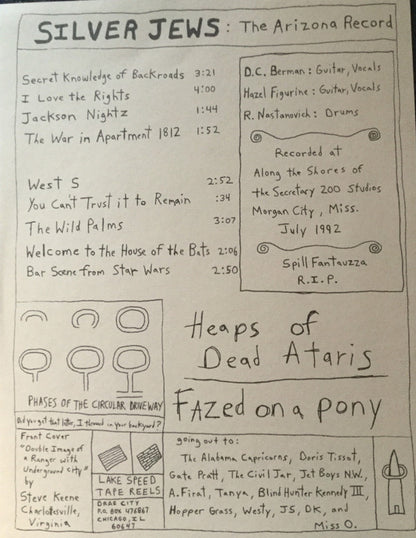 SILVER JEWS: The Arizona Record
Secret Knowledge of Backroads 3:21
I Love the Rights 4:00
Jackson Nightz 1:44
The War in Apartment 1812 1:52
West S 2:52
You Can't Trust it to Remain :34
The Wild Palms 3:07
Welcome to the House of the Bats 2:06
Bar Scene from Star Wars 2:50
D.C. Berman: Guitar, Vocals
Hazel Figurine: Guitar, Vocals
R. Nastanovich: Drums
Recorded at
Along the Shores of
the Secretary 200 Studios
Morgan City, Miss.
July 1992
Spill Fantauzza
R.I.P.
PHASES OF THE CIRCULAR DRIVEWAY
Did you get that letter, I throwed in your backyard?
Heaps of
Dead Ataris
FAZed on a pony
Front Cover
"Double Image of
a Ranger with
Underground City"
by
Steve Keene
Charlottesville,
Virginia
LAKE SPEED
TAPE REELS
DRAG CITY
P.O. BOX 476867
CHICAGO, IL
60647
going out to:
The Alabama Capricorns, Doris Tissot,
Gate Pratt, The Civil Jar, Jet Boys N.W.,
A. Firat, Tanya, Blind Hunter Kennedy III,
Hopper Grass, Westy, JS, DK, and
Miss O.